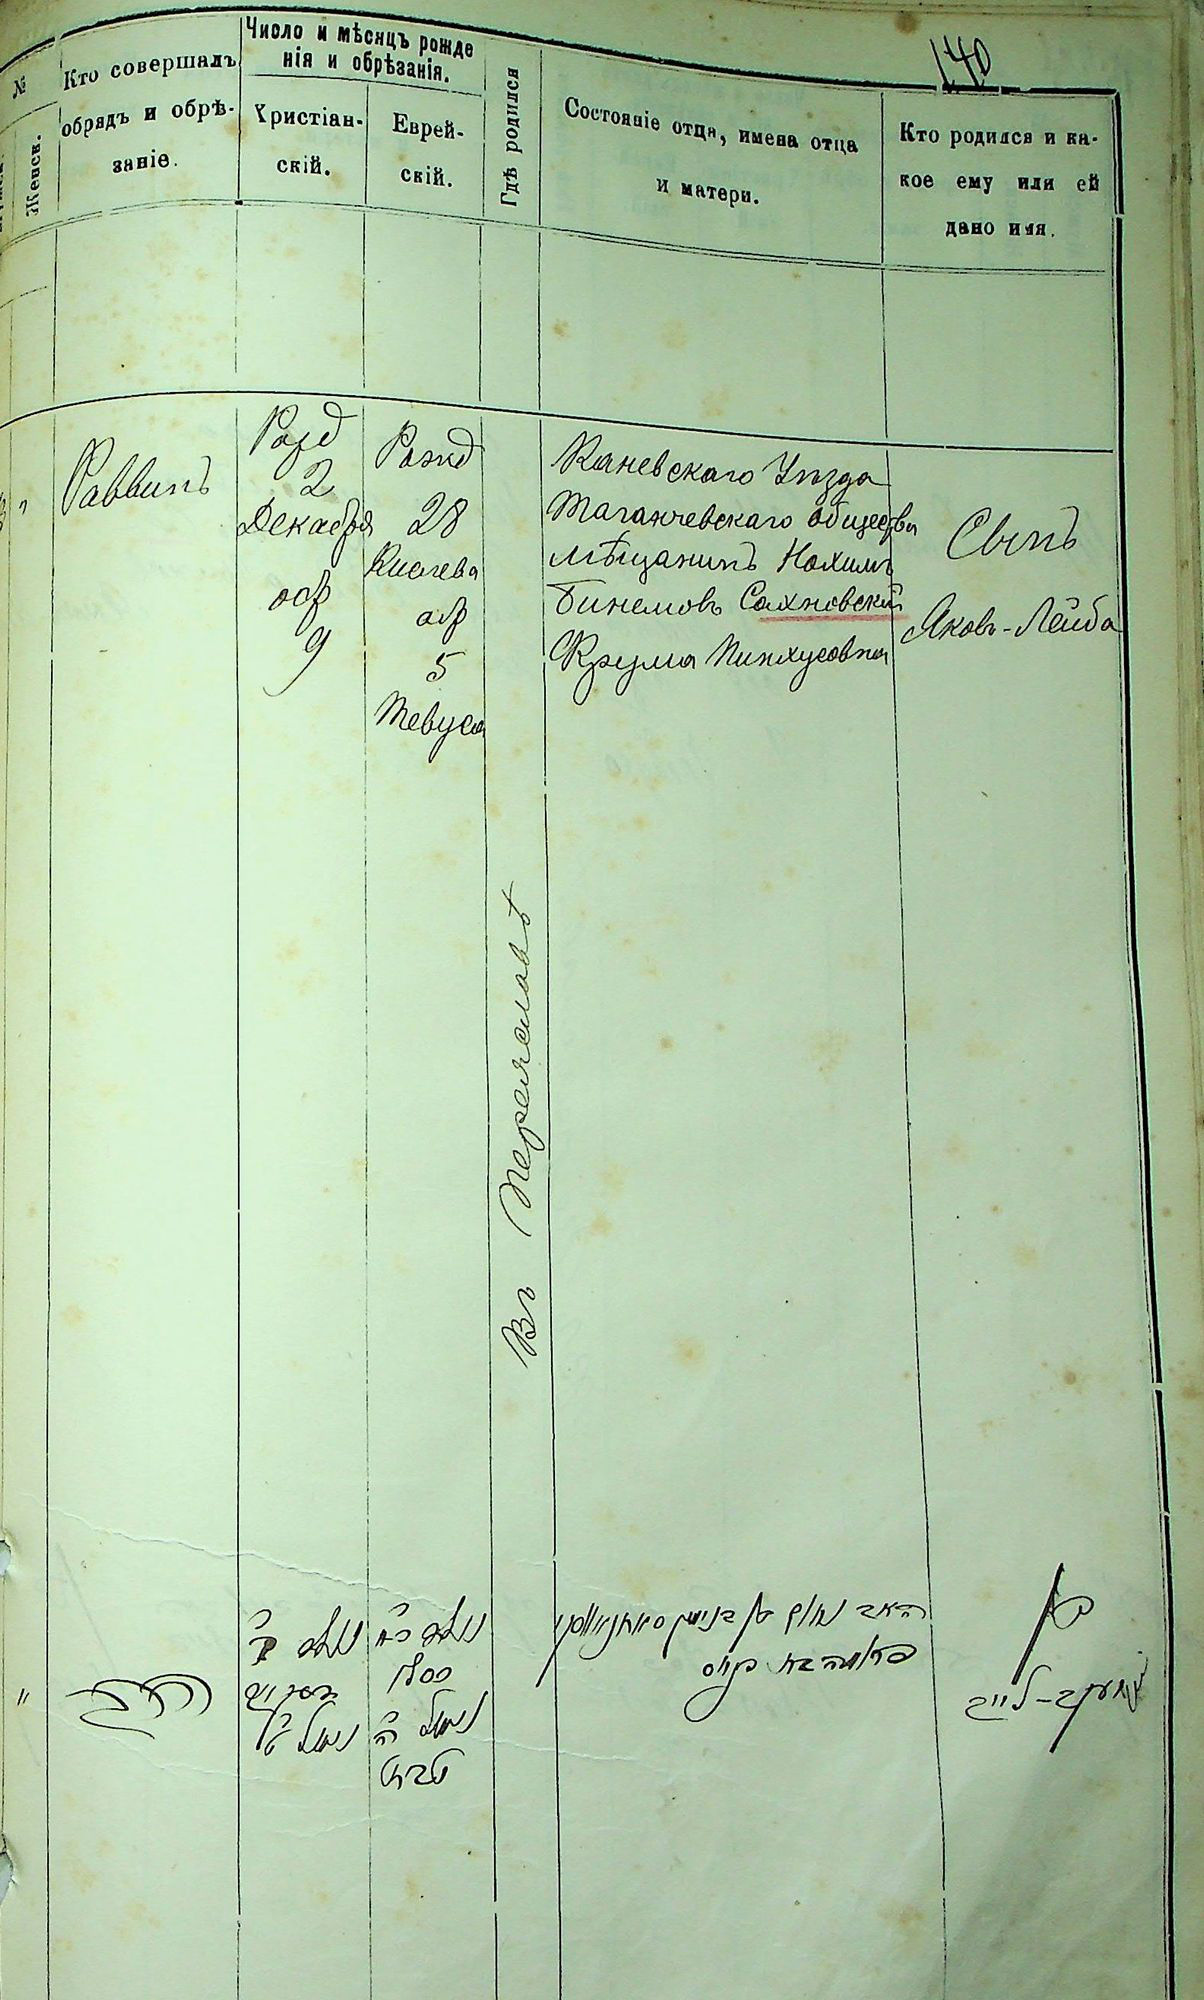 140
№
Женск.
Кто совершалъ
обрядъ и обрѣ-
заніе.
Число и мѣсяцъ рожде
нія и обрѣзанія.
Христіан-
скій.
Еврей-
скій.
Гдѣ родился
Состояніе отца, имена отца
и матери.
Кто родился и ка-
кое ему или ей
дано имя.
Раввинъ
Рожд
2
Декабря
обр
9
Рожд
28
Кислева
обр
5
Тевуса
Въ Переяславѣ
Каневскаго Уѣзда
Таганчевскаго общества
мѣщанинъ Нохимъ
Бинемовъ Сахновскій
Крума Пинхусовна
Сынъ
Яковъ-Лейба
הרב
נולד
נימול
נולד כח
כסלו
נימול ה
טבת
האב נחום בן
בן
יעקב-לייב